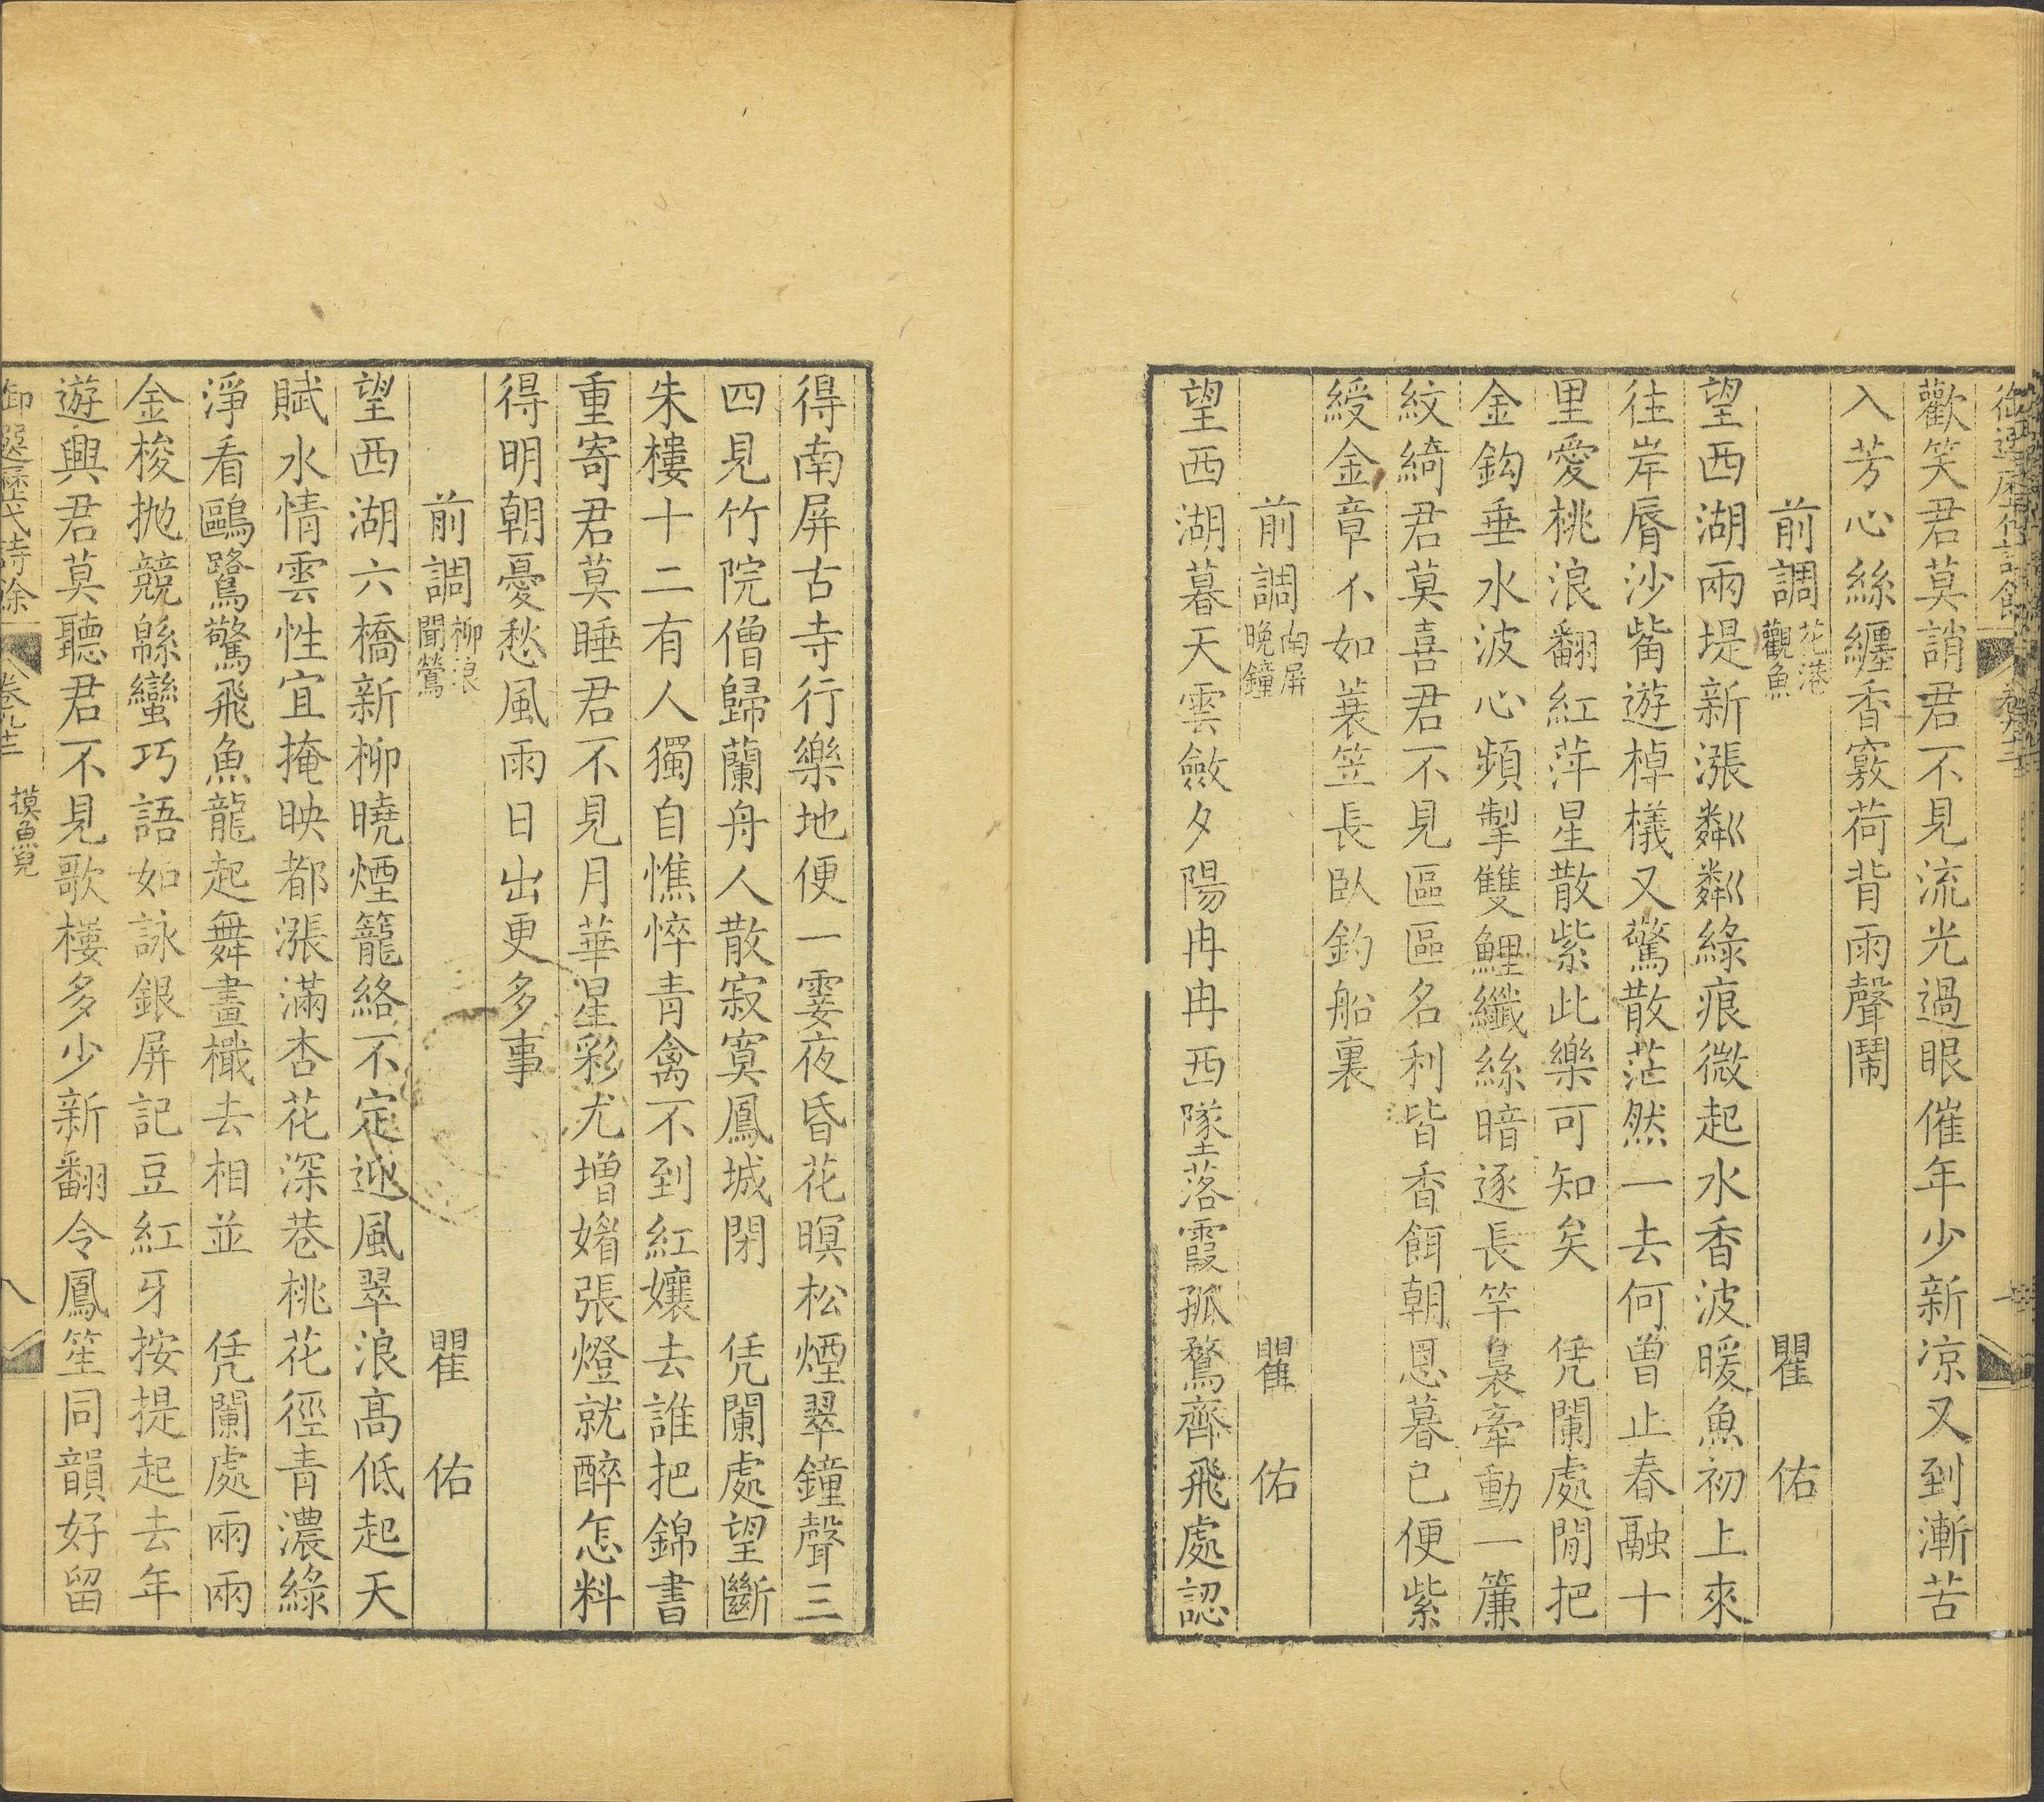 歡笑君莫誚君不見流光過眼催年少新凉又到漸苦
入芳心絲纏香竅荷背雨聲鬧
前調花港觀魚 瞿佑
望西湖兩堤新漲粼粼綠痕微起水香波暖魚初上來
往岸脣沙觜遊棹檥又驚散茫然一去何曾止春融十
里愛桃浪翻紅萍星散紫此樂可知矣 凭闌處閒把
金鈎垂水波心頻掣雙鯉纖絲暗逐長竿裊牽動一簾
紋綺君莫喜君不見區區名利皆香餌朝恩暮已便紫
綬金章不如蓑笠長臥釣船裏
前調南屏晚鐘 瞿佑
望西湖暮天雲斂夕陽冉冉西墜落霞孤鶩齊飛處認
得南屏古寺行樂地便一霎夜昏花暝松煙翠鐘聲三
四見竹院僧歸蘭舟人散寂寞鳳城閉 凭闌處望斷
朱樓十二有人獨自憔悴青禽不到紅孃去誰把錦書
重寄君莫睡君不見月華星彩尤增媚張燈就醉怎料
得明朝憂愁風雨日出更多事
前調柳浪聞鶯 瞿佑
望西湖六橋新柳曉煙籠絡不定迎風翠浪高低起天
賦水情雲性宜掩映都漲滿杏花深巷桃花徑青濃綠
淨看鷗鷺驚飛魚龍起舞畫檝去相並 凭闌處兩兩
金梭拋競緜蠻巧語如詠銀屏記豆紅牙按提起去年
遊興君莫聽君不見歌樓多少新翻令鳳笙同韻好留
御選歷代詩餘 卷九十三 摸魚兒 八